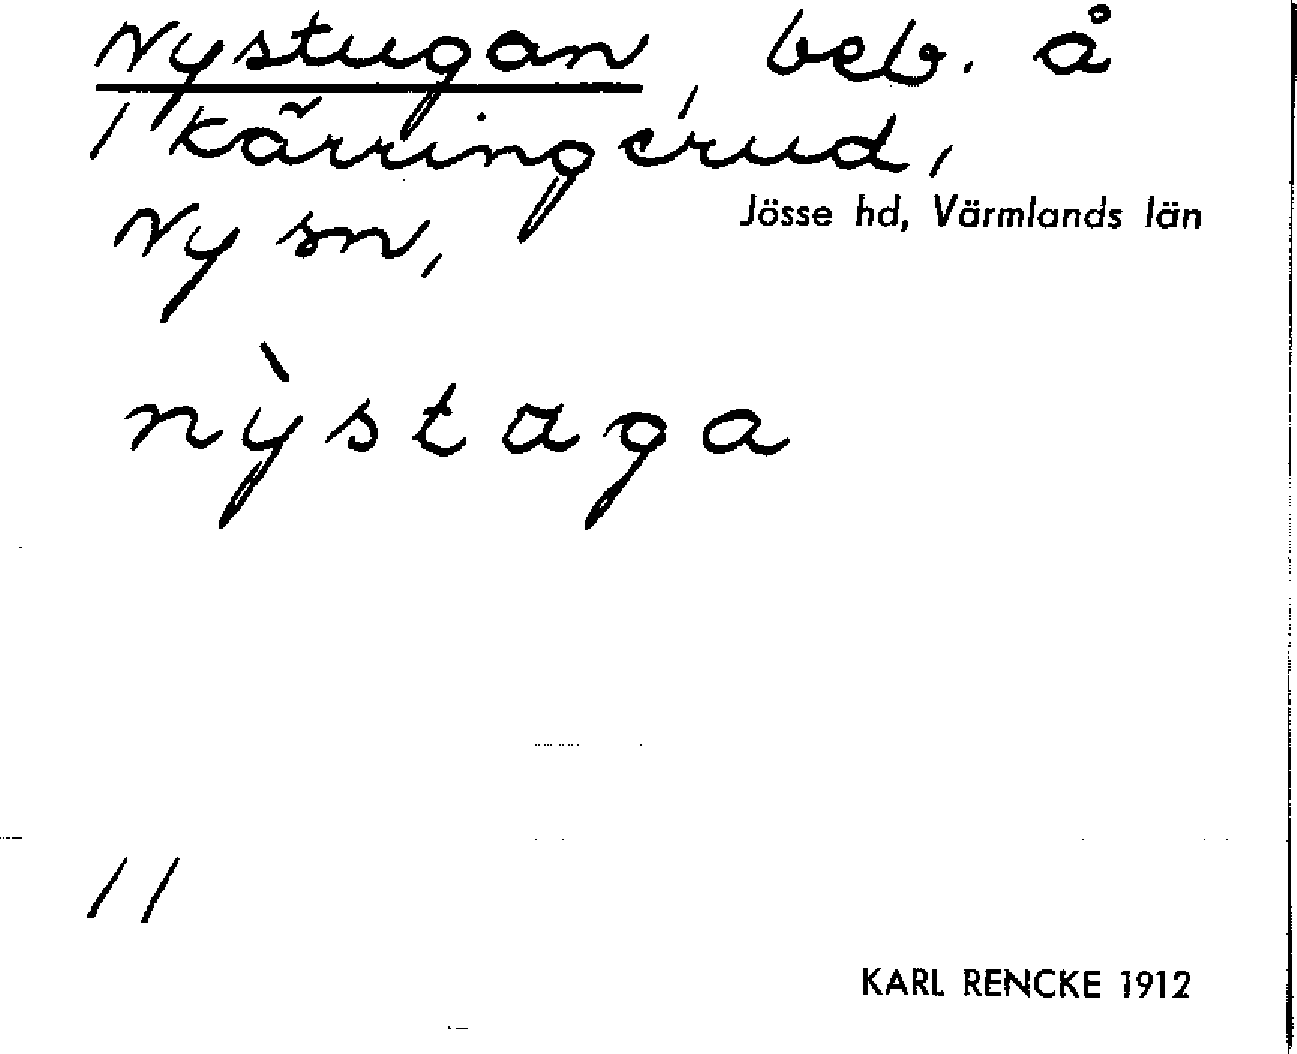 Nystugan, beb. å
1 Kärringerud,
Ny sn,
Jösse hd, Värmlands län
nỳstaga
11
KARL RENCKE 1912